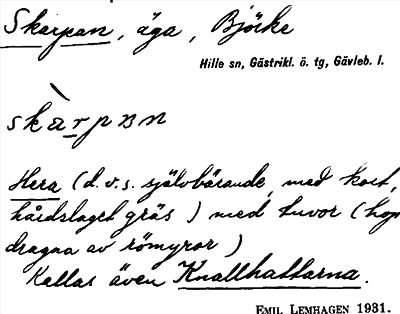 Skarpan, äga, Björke
Hille sn, Gästrikl. ö. tg, Gävleb. l.
skàrpan
Hera (d.v.s. självbärande, med kort,
hårdslaget gräs) med tuvor (hop
dragna av römyror)
Kallas även Knallhattarna.
EMIL LEMHAGEN 1931.